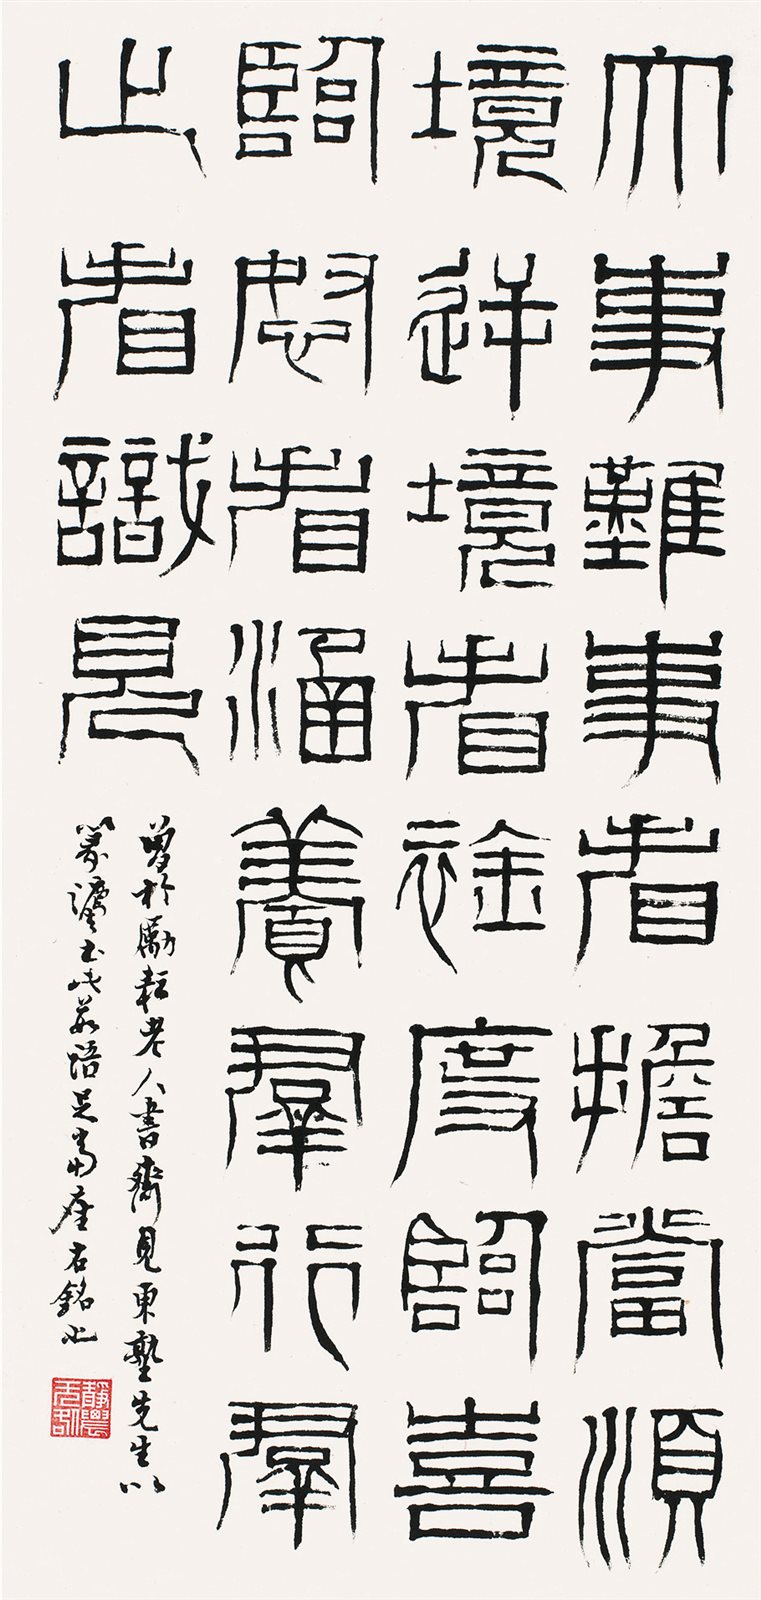 大事難事看擔當順
境逆境看襟度臨喜
臨怒看涵養羣行羣
止看識見
曾於勵耘老人書齋見東塾先生以
篆灋書此語足當座右銘也
靜農